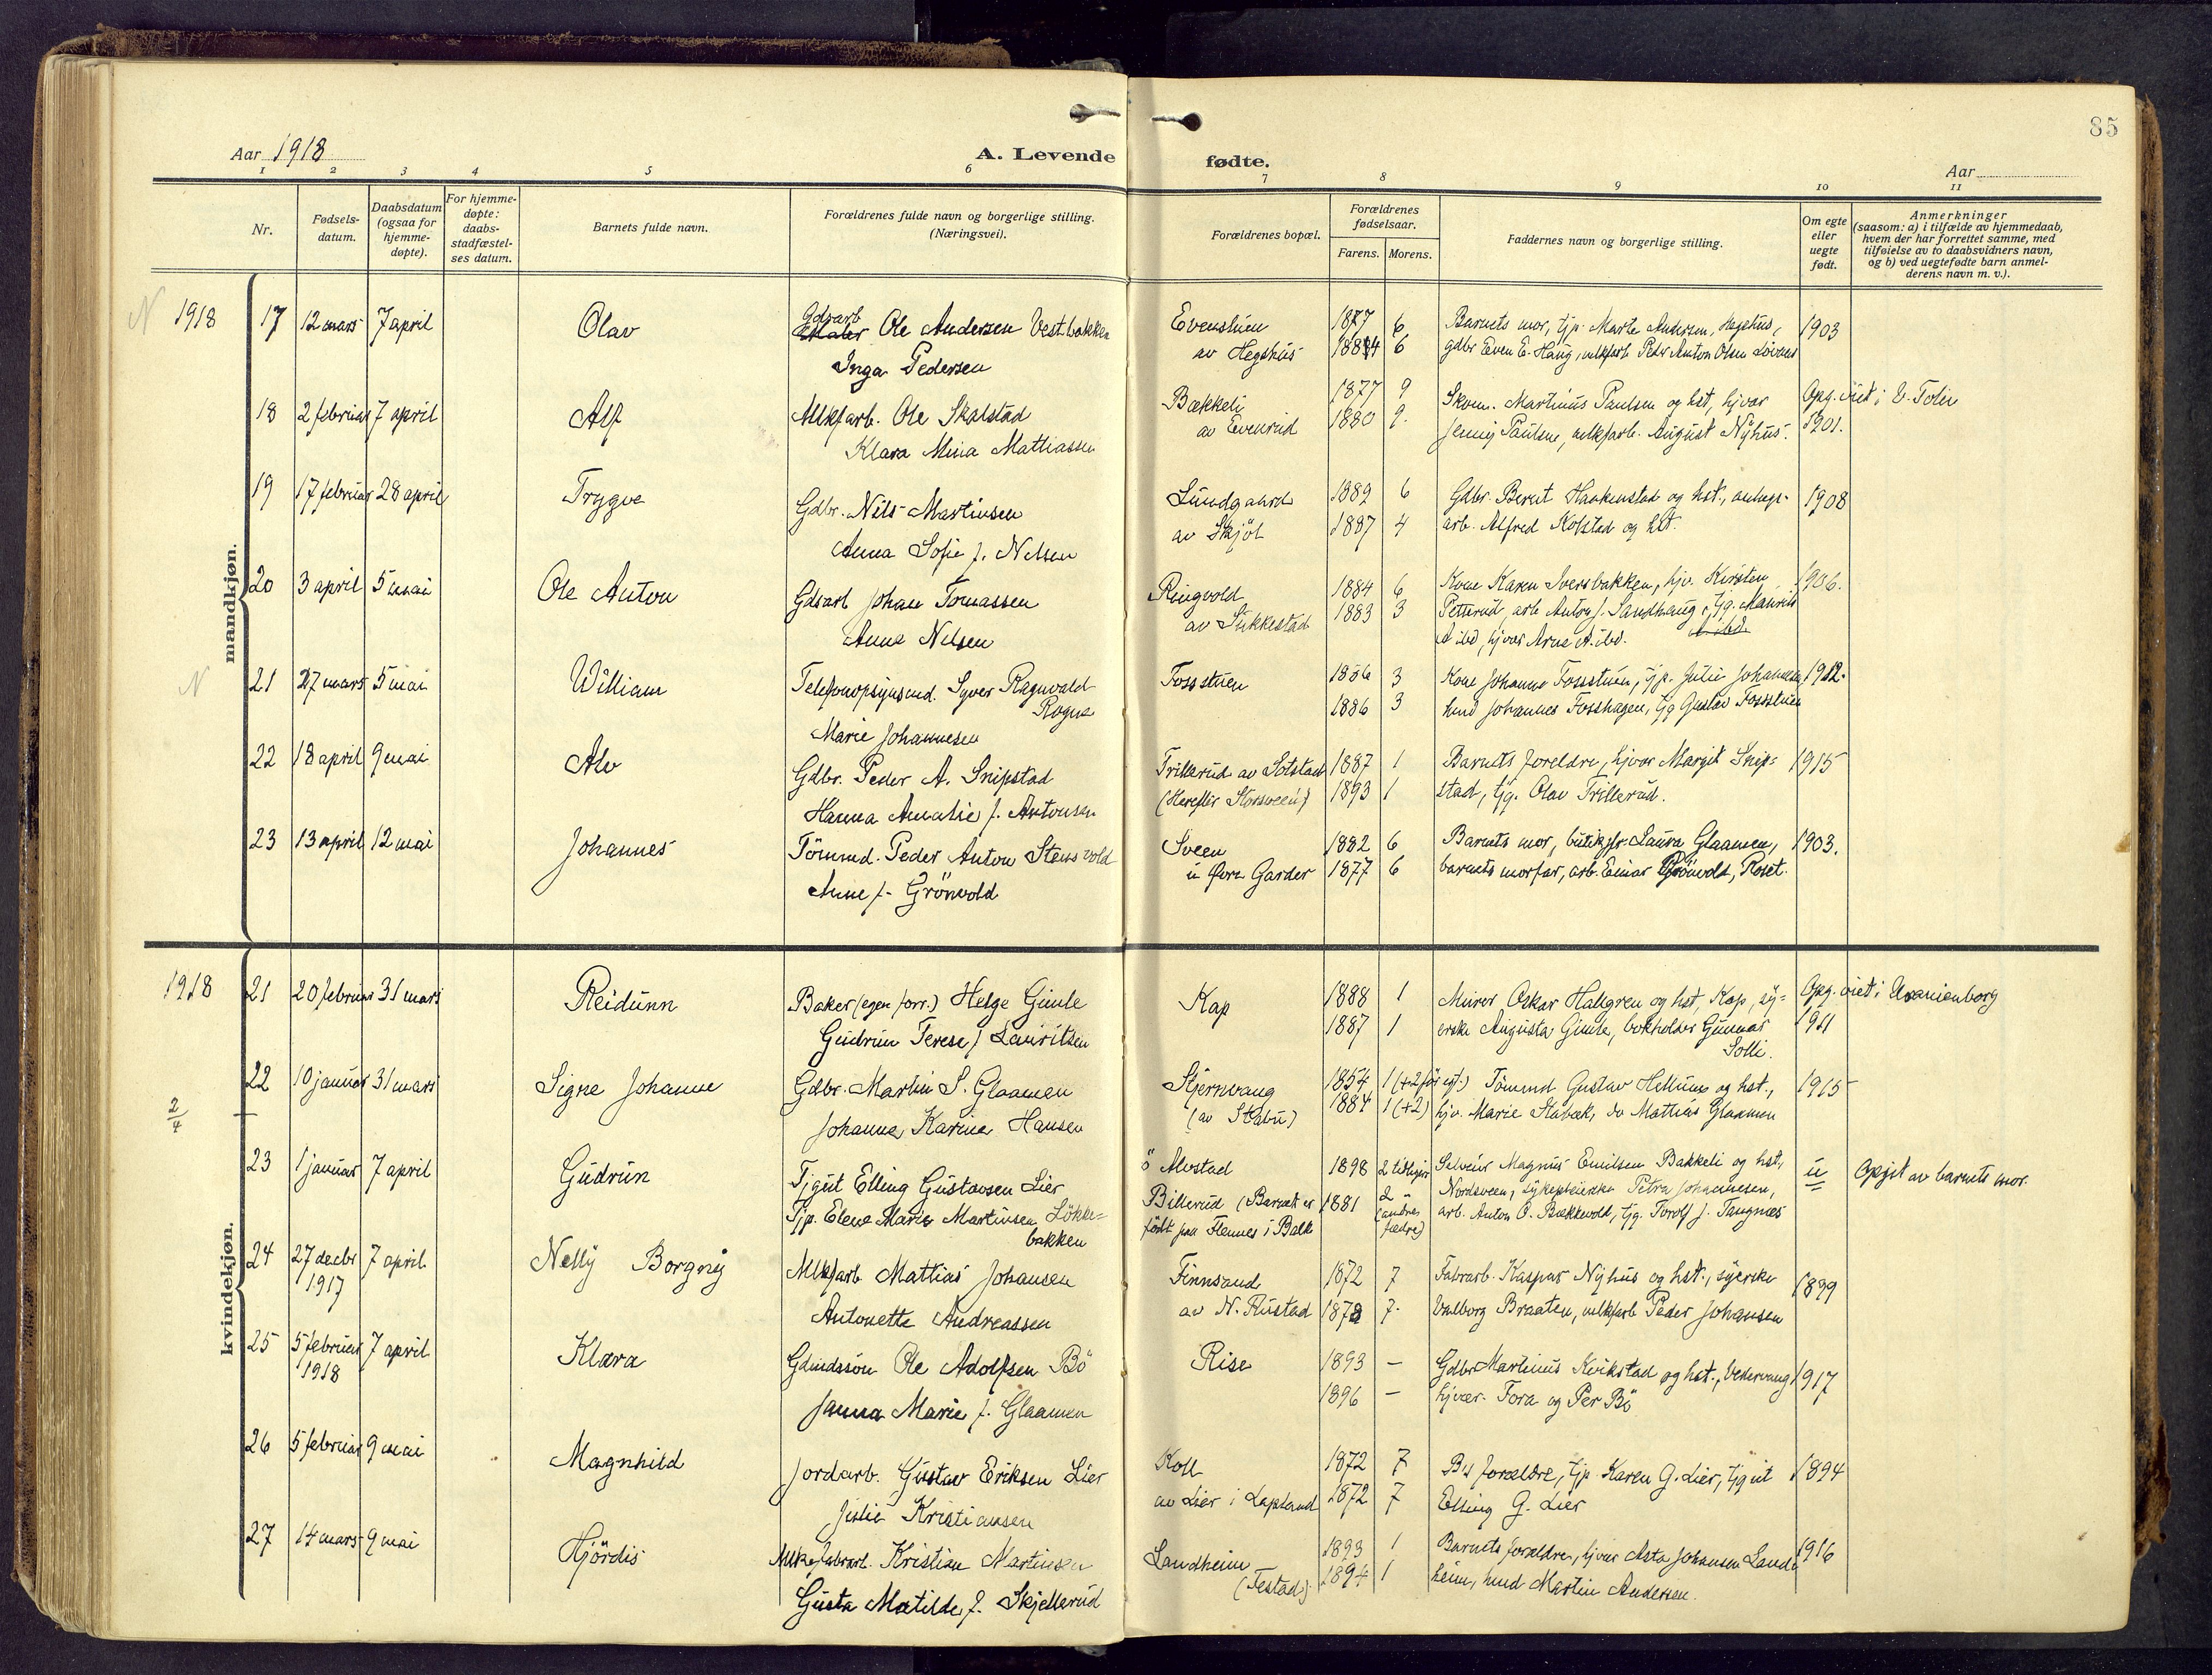 85
Aar 1918
A. Levende fødte.
Aar
1 2 3 4 5 6 7 8 9 10 11
Nr.
Fødsels-
datum.
Daabsdatum
(ogsaa for
hjemme-
døpte).
For hjemme-
døpte:
daabs-
stadfæstel-
ses datum.
Barnets fulde navn.
Forældrenes fulde navn og borgerlige stilling.
(Næringsvei).
Forældrenes bopæl.
Forældrenes
fødselsaar.
Farens. Morens.
Faddernes navn og borgerlige stilling.
Om egte
eller
uegte
født.
Anmerkninger
(saasom: a) i tilfælde av hjemmedaab,
hvem der har forrettet samme, med
tilføielse av to daabsvidners navn,
og b) ved uegtefødte barn anmel-
derens navn m. v.).
mandkjøn.
N 1918 17 12 mars 7 april Olav Gdsarb Ole Andersen Vestbakken Evenstuen 1877 6 Barnets mor, tjp. Marte Andersen, Hegshus, 1903
Inga Pedersen av Hegshus 1884 6 gdbr Even E. Haug, mlkfarb Peder Anton Olsen
18 2 februar 7 april Alf Mlkfarb. Ole Skalstad Bækkeli 1877 9 Skom. Martinus Paulsen og hst, hjvær Opg. viet i V. Toten
Klara Mina Mathiassen av Evenrud 1880 9. Jenny Paulsen, mlkfarb. August Nyhus. 1901.
19 17 februar 28 april Trygve Gdbr. Nils Martinsen Lundgaard 1889 6 Gdbr. Bernt Haakenstad og hst., anlegs- 1908
Anna Sofie f. Nilsen av Skjöl 1887 4 arb. Alfred Kolstad og hst.
20 3 april 5 mai Ole Anton Gdsarb Johan Tomassen Ringvold 1884 6 Kone Karen Iversbakken, hjv. Kirsten 1906.
Anna Nilsen av Sukkestad 1883 3 Petterud, arb Anton J. Sandhaug, tjg.
A ibd, hjvær Arne A. ibd.
N 21 27 mars 5 mai William Telefonopsynsmd. Syver Ragnvald Fossstuen 1886 3 Kone Johanne Fossstuen, tjp. Julie Johannesen, 1912.
Rogne
Marie Johannesen 1886 3 hmd Johannes Fosshagen, tjg Gustav Fossstuen
22 18 april 9 mai Alv Gdbr. Peder A. Snipstad Trillerud av Sotstad 1887 1 Barnets foreldre, hjvær Margit Snip- 1915
Hanna Amalie f. Antonsen (Herefter Storsveen) 1893 1 stad, tjg. Olav Trillerud.
23 13 april 12 mai Johannes Tömmd. Peder Anton Stensvold Sveen 1882 6 Barnets mor, butikfr. Laura Glaamen, 1903.
Anne f. Grönvold u Øvre Garder 1877 6 barnets morfar, arb. Einar Grönvold, Roset.
kvindekjøn.
1918 21 20 februar 31 mars Reidunn Baker (egen forr.) Helge Gimle Kap 1888 1 Murer Oskar Hallgren og hst, Kap, sy- Opg. viet i Uranienborg
Gudrun Terese f Lauritsen 1887 1 erske Augusta Gimle, bokholder Gunnar 1911
Solli.
22 10 januar 31 mars Signe Johanne Gdbr. Martin S. Glaamen Stjernvang 1854 1 (+2 för egt.) Tömmd Gustav Hellum og hst., 1915
2/4
Johanne Karine Hansen (av Stabu) 1884 1 (+2) hjv. Marie Stabæk, do Mathias Glaamen
23 1 januar 7 april Gudrun Tjgut Elling Gustavsen Lier ö Alvstad 1898 2 tidligere Selveier Magnus Emilsen Bakkeli og hst, u Opgit av barnets mor.
Tjp. Elene Marie Martinsen Løkke- Billerud (Barnet er 1881 2 Nordsveen, sykepleierske Petra Johannesen,
bakken født paa Flennes i Balke (andre fædre) arb. Anton O. Bækkevold, tjg. Torolf J. Taugnæs
24 27 decbr 7 april Nelly Borgny Mlkfarb Mathias Johansen Finnsand 1872 7 Fabrarb. Kaspar Nyhus og hst., syerske 1899
1917
Antonette Andreassen av N. Rustad 1872 7. Valborg Braaten, mlkfarb Peder Johansen
25 5 februar 7 april Klara Gdmdssön Ole Adolfsen Bö Rise 1893 – Gdbr Martinus Kvikstad og hst., Vedervang 1917
1918
Janna Marie f. Glaamen 1896 – hjvær. Tora og Per Bö
26 5 februar 9 mai Magnhild Jordarb. Gustav Eriksen Lier Koll 1872 7 Bs forældre, tjp. Karen G. Lier, tjgut 1894
Julie Kristiansen av Lier i Lapland 1872 7 Elling G. Lier
27 14 mars 9 mai Hjördis Mlkefabrarb. Kristian Martinsen Landheim 1893 1 Barnets forældre, hjvær Asta Johansen Land- 1916
Gusta Matilde f. Skjellerud (Festad) 1894 1 heim, hmd Martin Andersen.